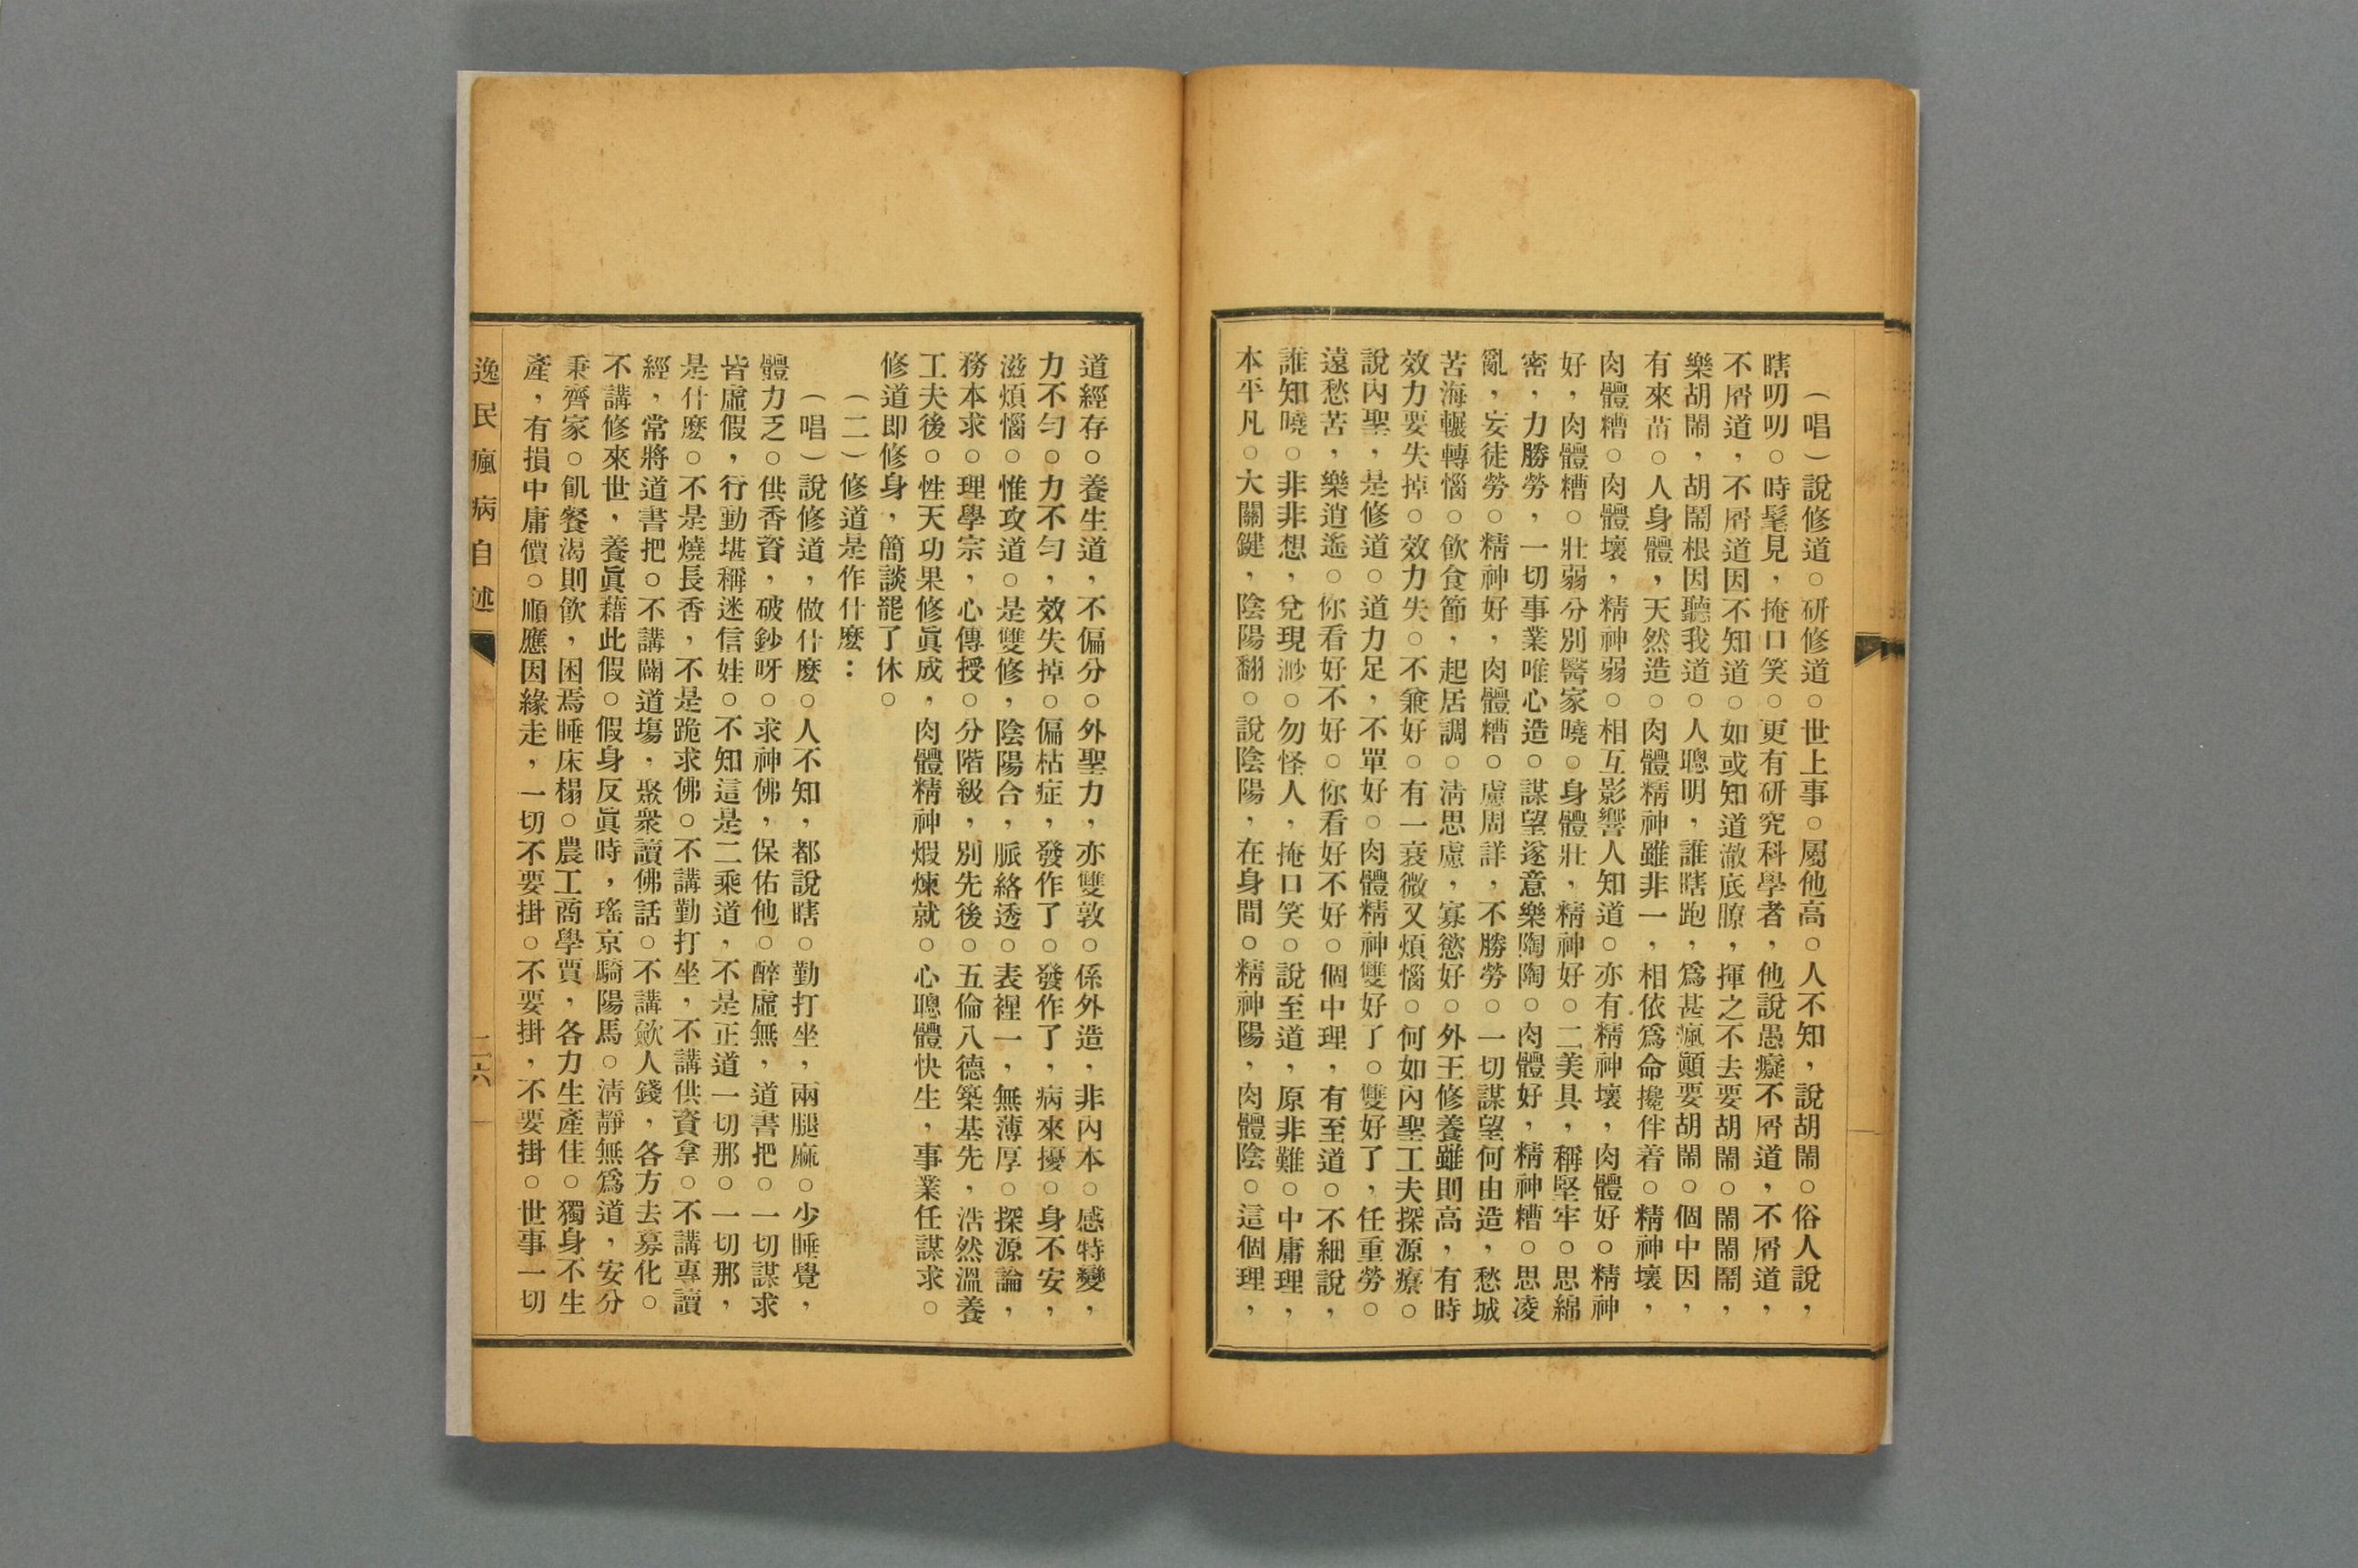 （唱）說修道。研修道。世上事。屬他高。人不知，說胡鬧。俗人說，
瞎叨叨。時髦見，掩口笑。更有研究科學者，他說愚癡不屑道，不屑道，
不屑道，不屑道因不知道。如或知道澈底瞭，揮之不去要胡鬧。鬧鬧鬧，
樂胡鬧，胡鬧根因聽我道。人聰明，誰瞎跑，爲甚瘋顚要胡鬧。個中因，
有來苗。人身體，天然造。肉體精神雖非一，相依爲命攙伴着。精神壞，
肉體糟。肉體壞，精神弱。相互影響人知道。亦有精神壞，肉體好。精神
好，肉體糟。壯弱分別醫家曉。身體壯，精神好。二美具，稱堅牢。思綿
密，力勝勞，一切事業唯心造。謀望遂意樂陶陶。肉體好，精神糟。思凌
亂，妄徒勞。精神好，肉體糟。慮周詳，不勝勞。一切謀望何由造，愁城
苦海輾轉惱。飲食節，起居調。淸思慮，寡慾好。外王修養雖則高，有時
效力要失掉。效力失。不兼好。有一衰微又煩惱。何如內聖工夫探源療。
說內聖，是修道。道力足，不單好。肉體精神雙好了。雙好了，任重勞。
遠愁苦，樂逍遙。你看好不好。你看好不好。個中理，有至道。不細說，
誰知曉。非非想，兌現渺。勿怪人，掩口笑。說至道，原非難。中庸理，
本平凡。大關鍵，陰陽翻。說陰陽，在身間。精神陽，肉體陰。這個理，
道經存。養生道，不偏分。外聖力，亦雙敦。係外造，非內本。感特變，
力不勻。力不勻，效失掉。偏枯症，發作了。發作了，病來擾。身不安，
滋煩惱。惟攻道。是雙修，陰陽合，脈絡透。表裡一，無薄厚。探源論，
務本求。理學宗，心傳授。分階級，別先後。五倫八德築基先，浩然溫養
工夫後。性天功果修眞成，肉體精神煆煉就。心聰體快生，事業任謀求。
修道卽修身，簡談罷了休。
（二）修道是作什麽：
（唱）說修道，做什麽。人不知，都說瞎。勤打坐，兩腿麻。少睡覺，
體力乏。供香資，破鈔呀。求神佛，保佑他。醉虛無，道書把。一切謀求
皆虛假，行動堪稱迷信娃。不知這是二乘道，不是正道一切那。一切那，
是什麽。不是燒長香，不是跪求佛。不講勤打坐，不講供資拿。不講專讀
經，常將道書把。不講闢道塲，聚衆讀佛話。不講歛人錢，各方去募化。
不講修來世，養眞藉此假。假身反眞時，瑤京騎陽馬。淸靜無爲道，安分
秉齊家。飢餐渴則飲，困焉睡床榻。農工商學賈，各力生產佳。獨身不生
產，有損中庸價。順應因緣走，一切不要掛。不要掛，不要掛。世事一切
逸民瘋病自述
二六